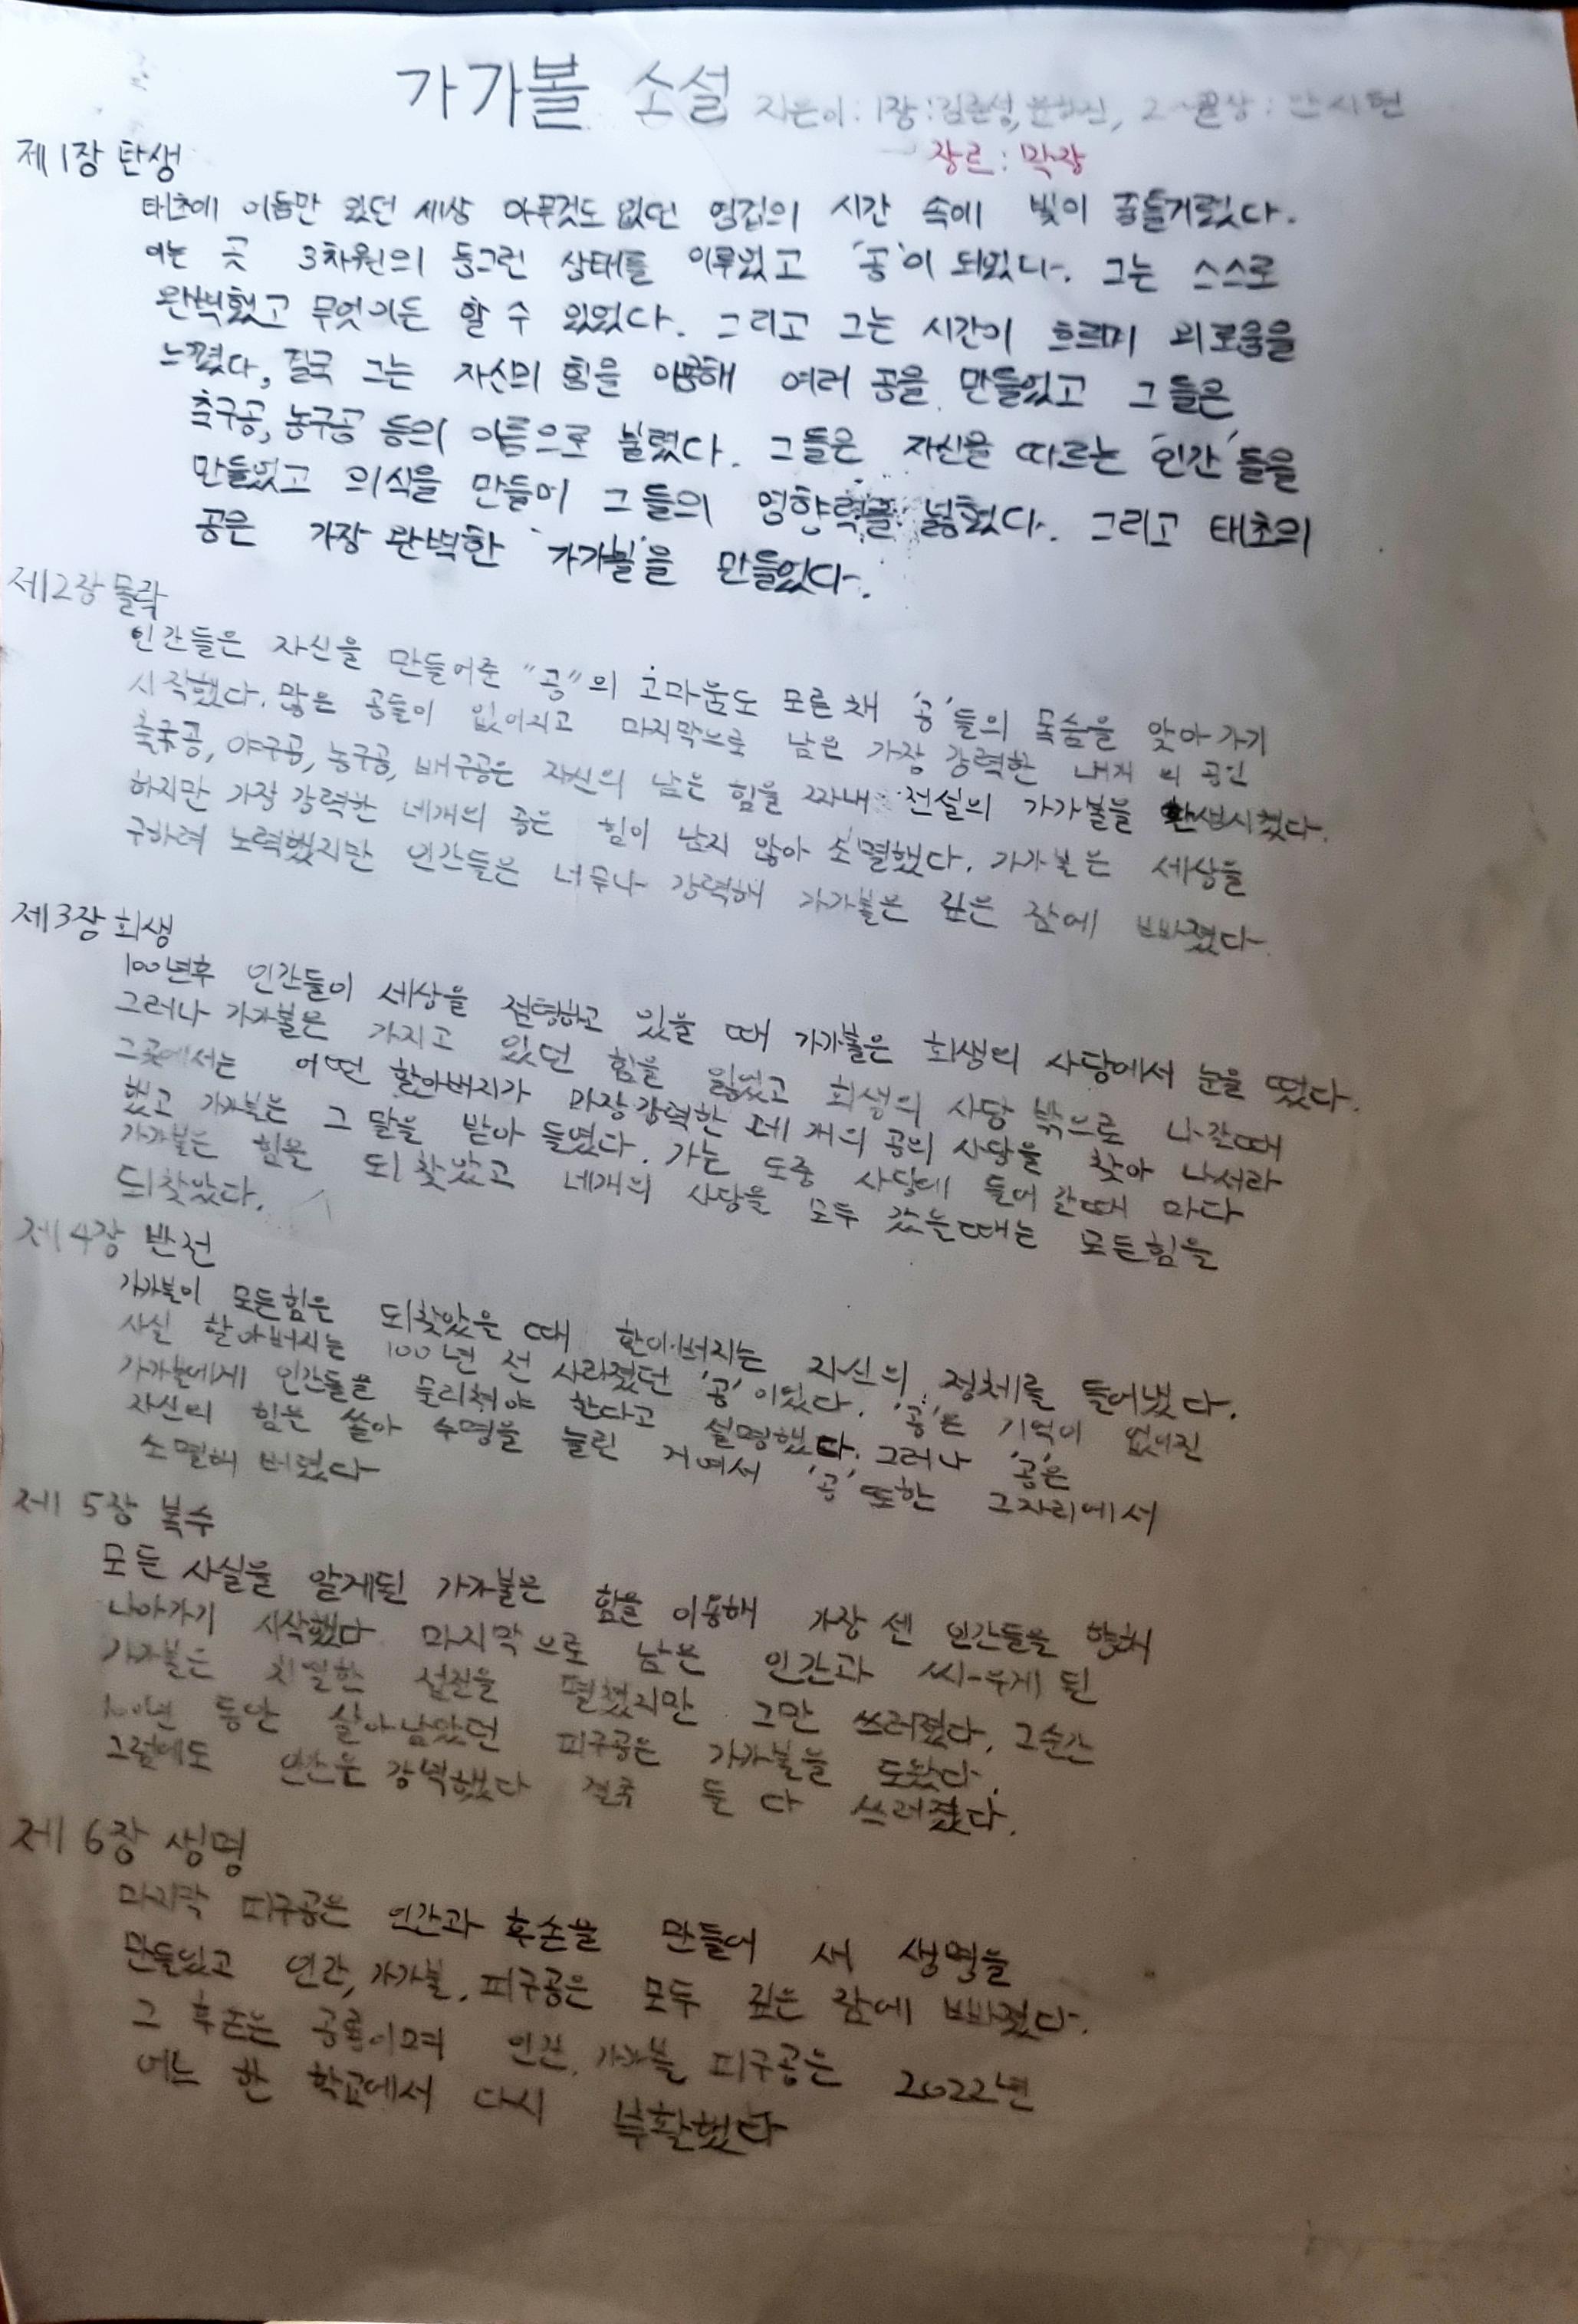 가가볼 소설 지은이: 1장: 김준성, 문하진, 2~끝장:
장르: 막장
제1장 탄생
태초에 어둠만 있던 세상 아무것도 없던 영겁의 시간 속에 빛이 꿈틀거렸다.
이는 곳 3차원의 둥그런 상태를 이루었고 '공'이 되었다. 그는 스스로
완벽했고 무엇이든 할 수 있었다. 그리고 그는 시간이 흐르며 괴로움을
느꼈다, 결국 그는 자신의 힘을 이용해 여러 공을 만들었고 그들은
축구공, 농구공 등의 이름으로 불렸다. 그들은 자신을 따르는 '인간'들을
만들었고 의식을 만들어 그들의 영향력을 넓혔다. 그리고 태초의
공은 가장 완벽한 '가가볼'을 만들었다.
제2장 몰락
인간들은 자신을 만들어준 "공"의 고마움도 모른채 '공'들의 목숨을 앗아가기
시작했다. 많은 공들이 없어지고 마지막으로 남은 가장 강력한 네개의 공인
축구공, 야구공, 농구공, 배구공은 자신의 남은 힘을 짜내 전설의 가가볼을 탄생시켰다.
하지만 가장 강력한 네개의 공은 힘이 남지 않아 소멸했다. 가가볼은 세상을
구하려 노력했지만 인간들은 너무나 강력해 가가볼은 깊은 잠에 빠졌다.
제3장 회생
100년후 인간들이 세상을 점령하고 있을 때 가가볼은 회생의 사당에서 눈을 떴다.
그러나 가가볼은 가지고 있던 힘을 잃었고 회생의 사당 밖으로 나간때
그곳에서는 어떤 할아버지가 가장강력한 네 개의 공의 사당을 찾아 나서라
했고 가가볼은 그 말을 받아 들였다. 가는 도중 사당에 들어 갈때 마다
가가볼은 힘을 되찾았고 네개의 사당을 모두 갔을때는 모든힘을
되찾았다.
제4장 반전
가가볼이 모든힘은 되찾았을 때 할아버지는 자신의 정체를 들어냈다.
사실 할아버지는 100년 전 사라졌던 '공'이었다. '공'은 기억이 없어진
가가볼에게 인간들을 물리쳐야 한다고 설명했다. 그러나 '공'은
자신의 힘을 쏟아 수명을 늘린 거여서 '공' 또한 그자리에서
소멸해 버렸다
제 5장 복수
모든 사실을 알게된 가가볼은 힘을 이용해 가장 센 인간들을 향해
나아가기 시작했다 마지막으로 남은 인간과 싸우게 된
가가볼은 치열한 접전을 펼쳤지만 그만 쓰러졌다. 그순간
100년 동안 살아남았던 피구공은 가가볼을 도왔다.
그럼에도 인간은 강력했다 결국 둘 다 쓰러졌다.
제 6장 생명
마지막 피구공은 인간과 후손을 만들어 새 생명을
만들었고 인간, 가가볼, 피구공은 모두 깊은 잠에 빠졌다.
그 후손은 공룡이며 인간, 가가볼, 피구공은 2022년
어느 한 학교에서 다시 부활했다